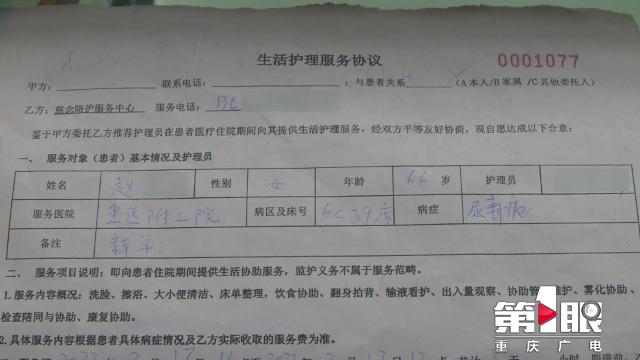 生活护理服务协议 0001077
甲方： 联系电话： ；与患者关系 （A本人/B家属 /C其他委托人）
乙方：慈念陪护服务中心 服务电话：
鉴于甲方委托乙方推荐护理员在患者医疗住院期间向其提供生活护理服务，经双方平等友好协商，现自愿达成以下合意：
一、 服务对象（患者）基本情况及护理员
姓名 赵 性别 女 年龄 66 岁 护理员
服务医院 重医附二院 病区及床号 6C 39床 病症 尿毒症
备注
二、服务项目说明：即向患者住院期间提供生活协助服务，监护义务不属于服务范畴。
1.服务内容概况：洗脸、擦浴、大小便清洁、床单整理，饮食协助、翻身拍背、输液看护、出入量观察、协助管 护、雾化协助、
检查陪同与协助、康复协助。
2.具体服务内容根据患者具体病症情况及乙方实际收取的服务费为准。
第1眼
重庆广电